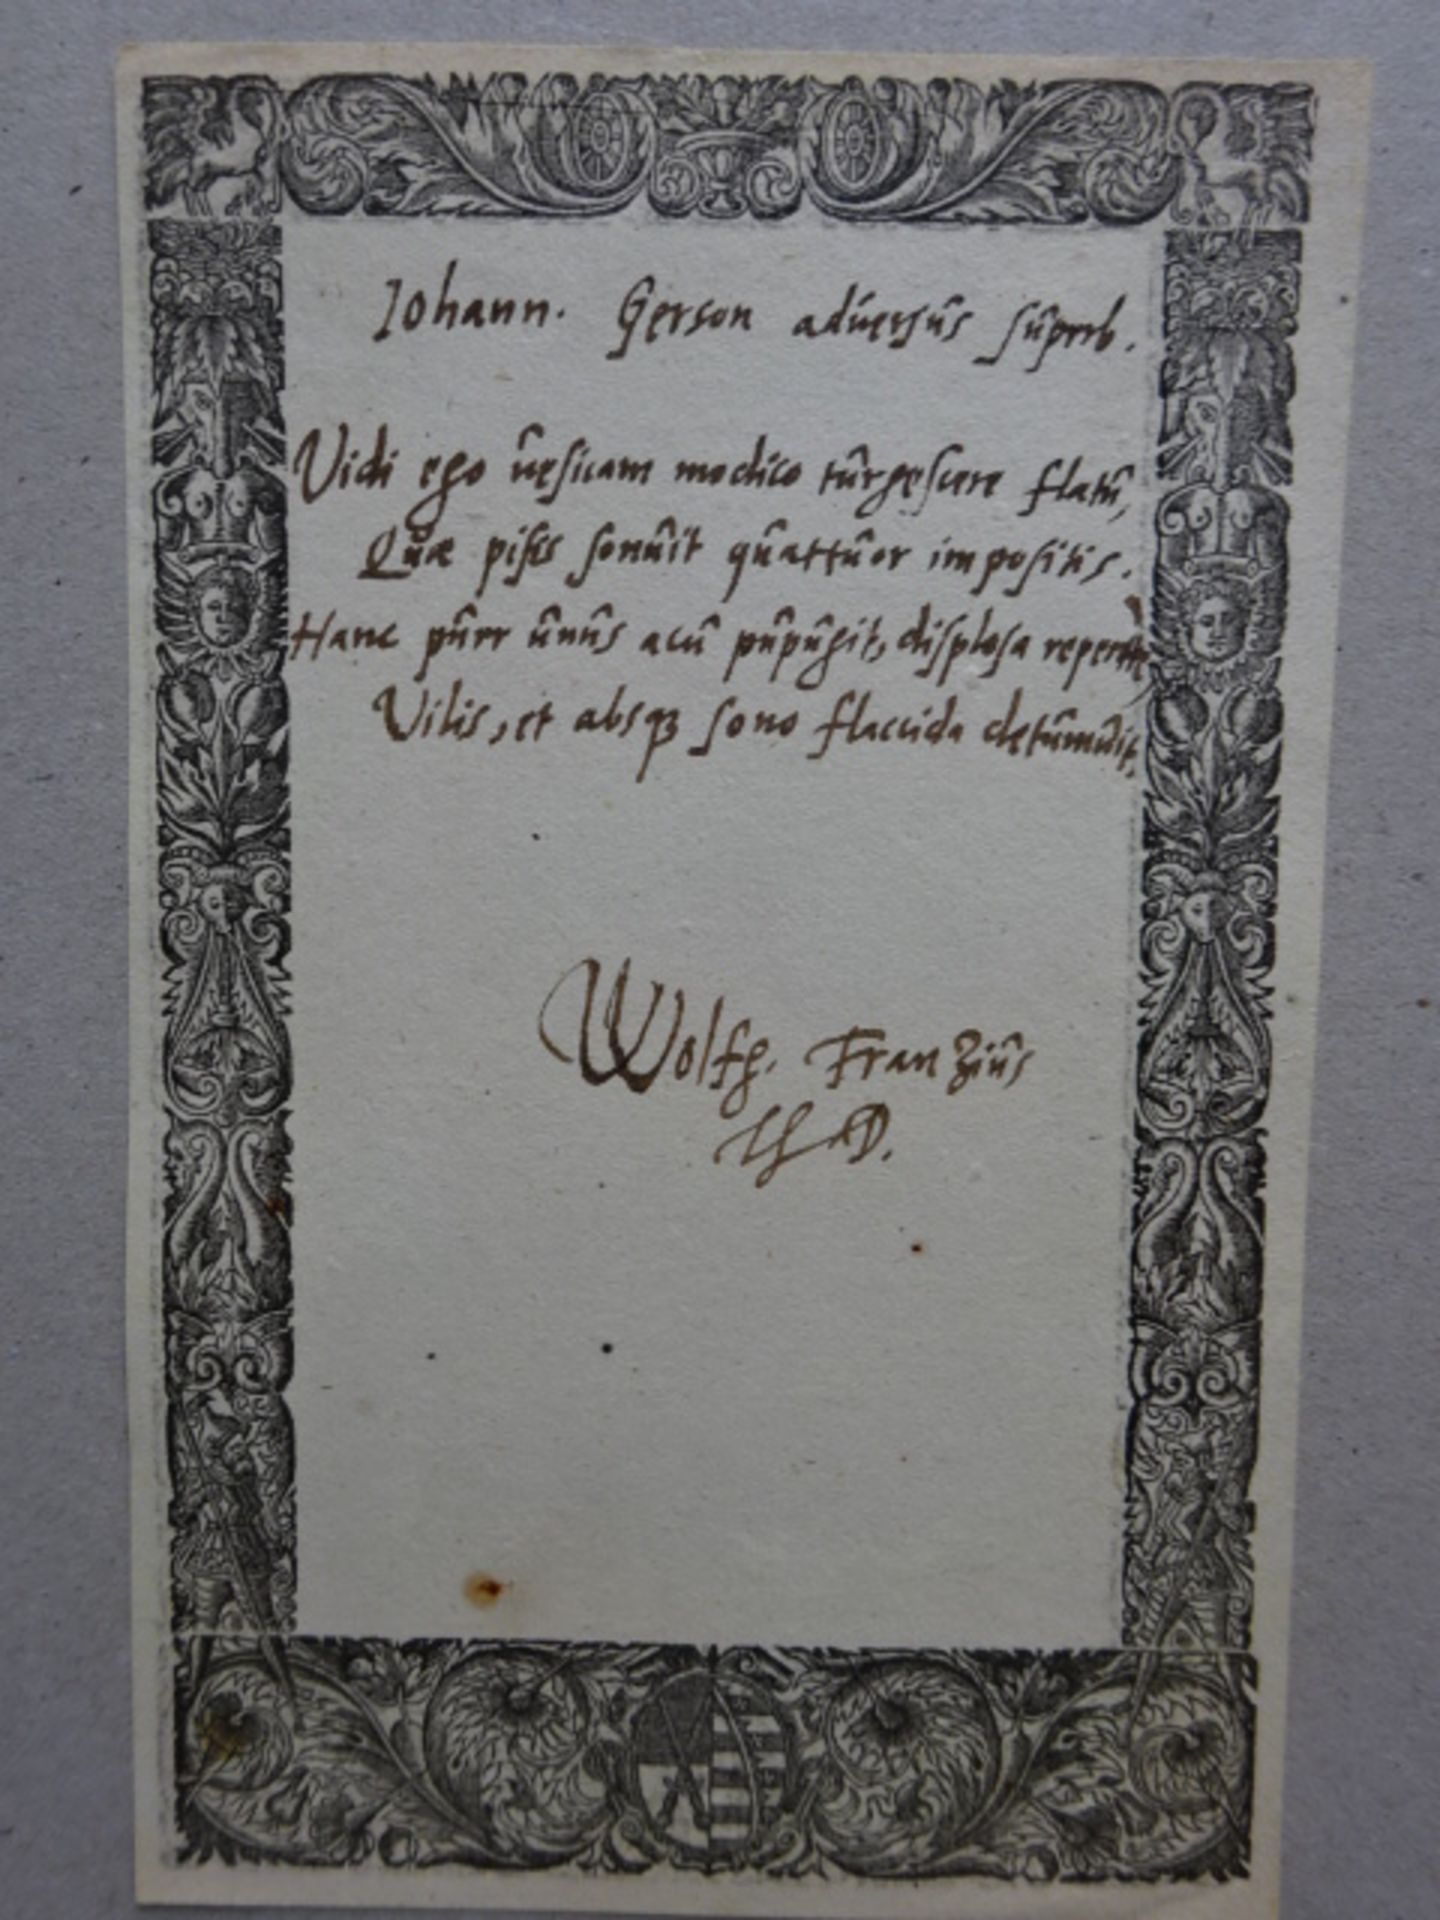 Iohann. Gerson adversus superb.
Vidi ego vesicam modico turgescere flatu,
Quae pisis sonuit quattuor impositis.
Hanc puer unus acu pupugit, displosa repente
Vilis, et absq; sono flaccida detumuit.
Wolfg. Franzius
Th D.